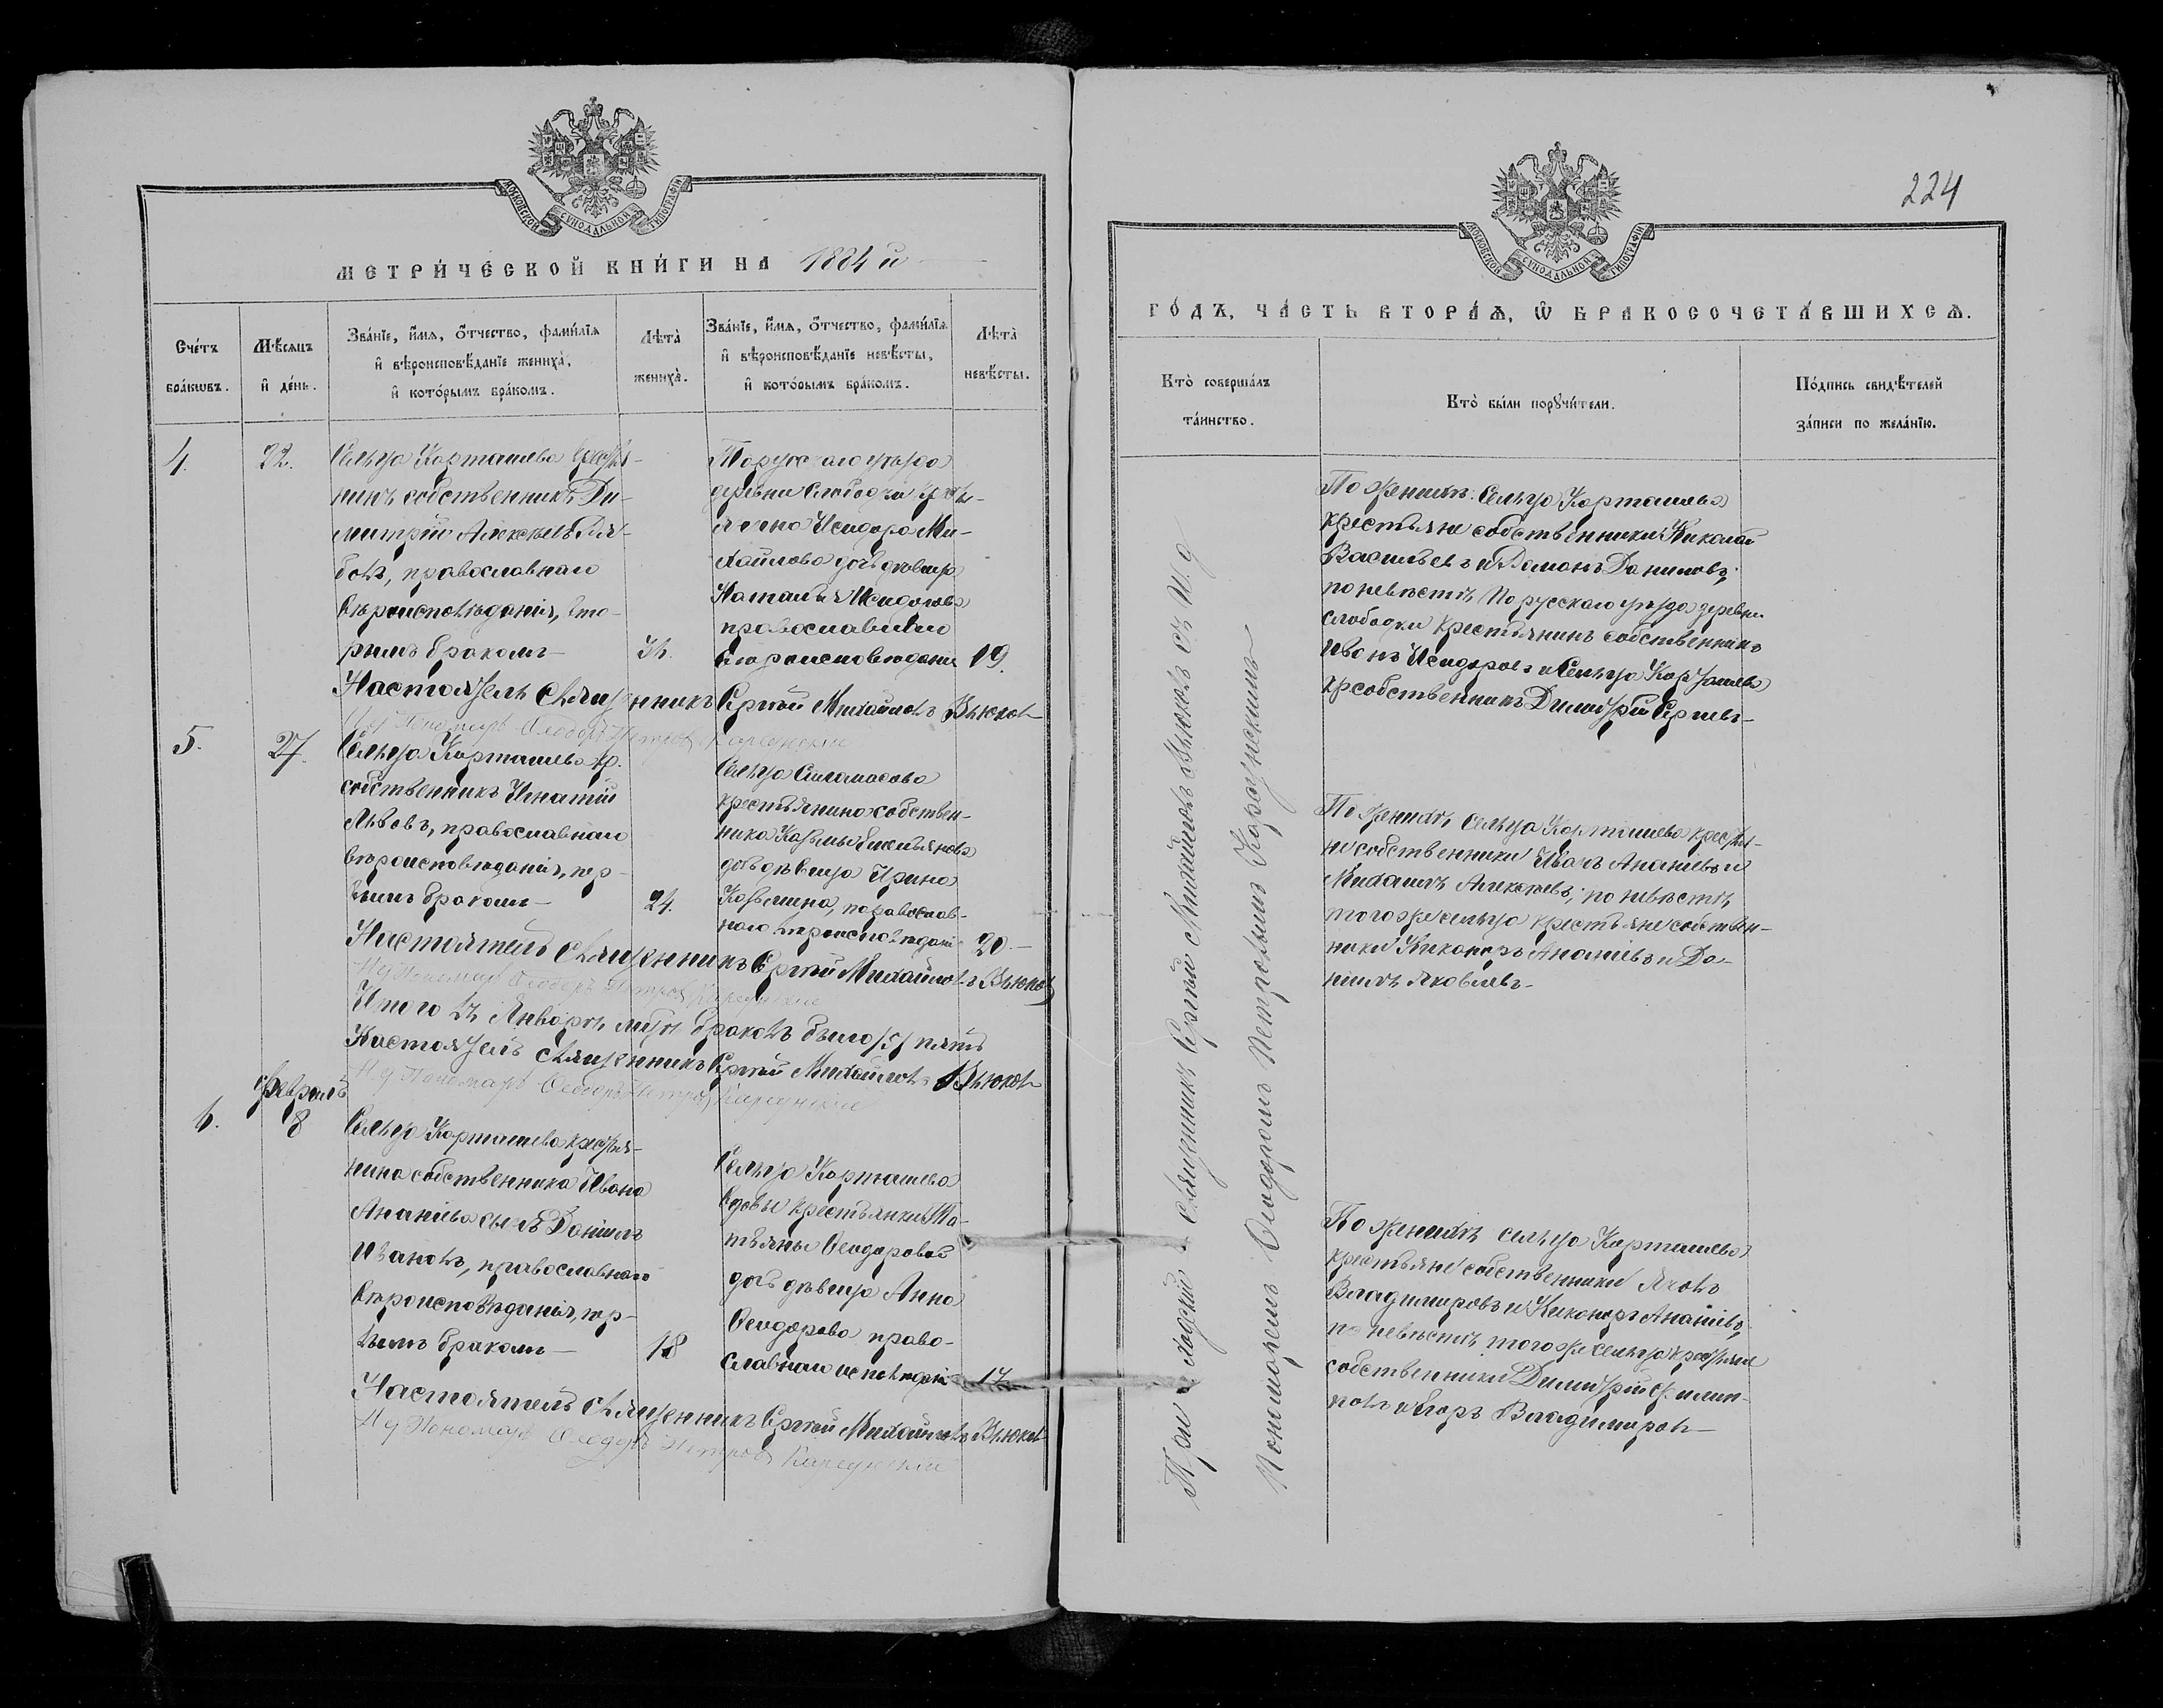 МОСКОВСКОЙ СУНОДАЛЬНОЙ ТИПОГРАФІИ
МЕТРИ́ЧЕСКОЙ КНИ́ГИ НА 1884 й
Сче́тъ бра́кωвъ.
Мѣ́сяцъ и҆ де́нь.
Зва́нїе, и҆́мѧ, ѻ҆́тчество, фами́лїѧ
и҆ вѣроисповѣ́данїе жениха̀,
и҆ кото́рымъ бра́комъ.
Лѣта̀ жениха̀.
Зва́нїе, и҆́мѧ, ѻ҆́тчество, фами́лїѧ
и҆ вѣроисповѣ́данїе невѣ́сты,
и҆ кото́рымъ бра́комъ.
Лѣта̀ невѣ́сты.
4.
22.
Сельца Карташева кресть-
нинъ собственникъ Ди-
митрій Алексѣевъ
православнаго
вѣроисповѣданія, вто-
рымъ бракомъ
уѣзда
деревни Слободки
Исидора Ми-
хайлова дочь дѣвица
Наталья Исидорова
православнаго
вѣроисповѣданія
19.
Настоятель Священникъ Сергій Михайловъ Вьюковъ
Пономарь Ѳеодоръ Петровъ
5.
27.
Сельца Карташева кр.
собственникъ Игнатій
Львовъ, православнаго
вѣроисповѣданія, пер-
вымъ бракомъ
24.
Сельца
крестьянина собствен-
ника Козьмы Емельянова
дочь дѣвица Ирина
Козьмина, православ-
наго вѣроисповѣданія
20.
Настоятель Священникъ Сергій Михайловъ Вьюковъ
И д Пономаря Ѳеодоръ Петровъ
Итого въ Январѣ мцѣ браковъ было /5/ пять
Настоятель Священникъ Сергій Михайловъ Вьюковъ
И д Пономаря Ѳеодоръ Петровъ
Февраль
6.
8
Сельца Карташева крестья-
нина собственника Ивана
Ананіева сынъ Даніилъ
Ивановъ, православнаго
вѣроисповѣданія, пер-
вымъ бракомъ
18
Сельца Карташева
вдовы крестьянки Та-
тьяны Ѳеодоровой
дочь дѣвица Анна
Ѳеодорова право-
славнаго исповѣданія
17
Настоятель Священникъ Сергій Михайловъ Вьюковъ
И д Пономаря Ѳеодоръ Петровъ
224
МОСКОВСКОЙ СУНОДАЛЬНОЙ ТИПОГРАФІИ
ГО́ДЪ, ЧА́СТЬ ВТОРА́Ѧ, Ѡ҆ БРАКОСОЧЕТА́ВШИХСѦ.
Кто̀ соверша́лъ та́инство.
Кто̀ бы́ли порꙋчи́тели.
По́дпись свидѣ́телей за́писи по жела́нїю.
Священникъ Сергій Михайловъ Вьюковъ съ И. д
Пономаремъ Ѳеодоромъ Петровымъ
По женихѣ: Сельца Карташева
крестьяне собственники Николай
Васильевъ и Романъ Даниловъ;
по невѣстѣ уѣзда деревни
Слободки крестьянинъ собственникъ
Иванъ Исидоровъ и Сельца Карташева
кр собственникъ Димитрій Сергѣевъ
По женихѣ Сельца Карташева крестья-
не собственники Иванъ Ананіевъ и
Михаилъ Алексѣевъ; по невѣстѣ
того же сельца крестьяне собствен-
ники Никаноръ Ананіевъ и Да-
ніилъ Яковлевъ
По женихѣ сельца Карташева
крестьяне собственники Яковъ
Владимировъ и Никаноръ Ананіевъ,
по невѣстѣ того же сельца крестьяне
собственники Димитрій Филип-
повъ и Егоръ Владимировъ